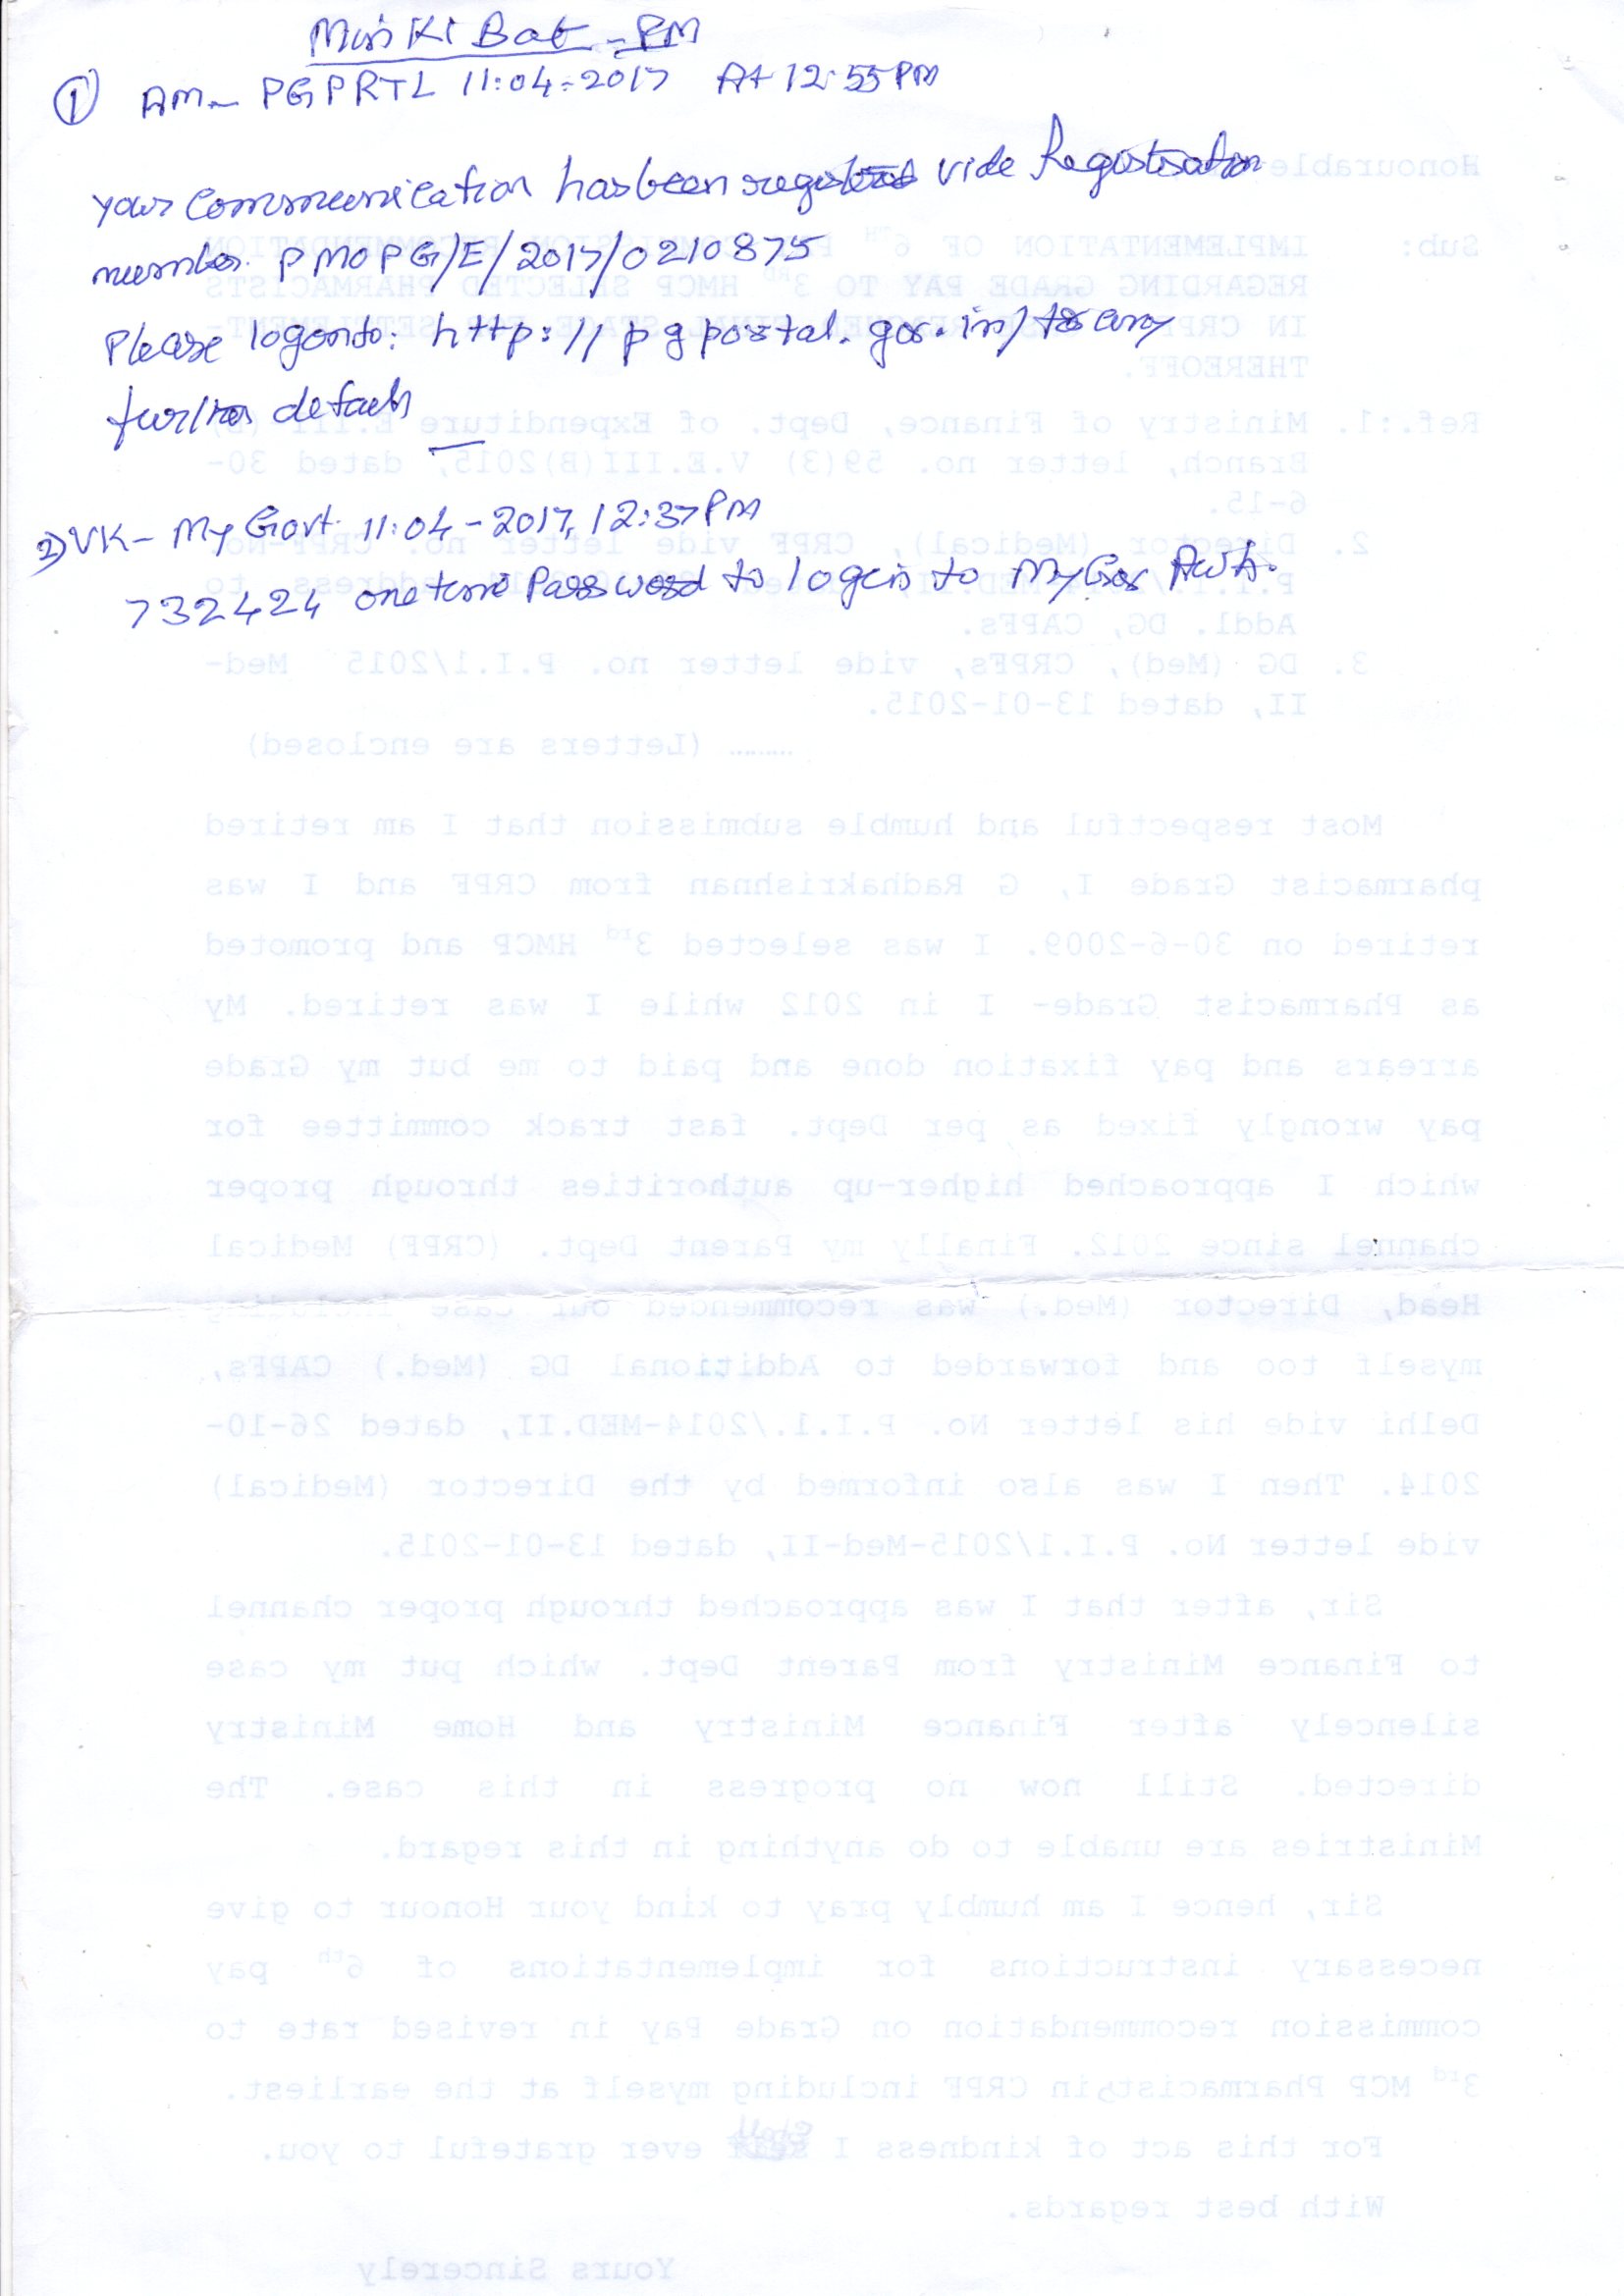 Man Ki Bat - PM
① AM- PGPRTL 11:04-2017 At 12:55 PM
your communication has been registered vide Registration
number PMOPG/E/2017/0210875
Please logonto: http://pgportal.gov.in/ for any
further details
2) VK- My Govt 11:04-2017, 12:37 PM
732424 one time Password to login to MyGov
Honourable
Sub: IMPLEMENTATION OF 6TH RECOMMENDATION
REGARDING GRADE PAY TO 3RD HMCP SELECTED PHARMACISTS
IN CRPF SETTLEMENT-
THEREOFF.
Ref.:1. Ministry of Finance, Dept. of Expenditure E.III
Branch, letter no. 59(3) V.E.III(B)2015, dated 30-
6-15.
2. Director (Medical), CRPF vide letter no. CRPF-No.
P.I.1. address to
Addl. DG, CAPFs.
3. DG (Med), CRPFs, vide letter no. P.I.1/2015 Med-
II, dated 13-01-2015.
……… (Letters are enclosed)
Most respectful and humble submission that I am retired
pharmacist Grade I, G Radhakrishnan from CRPF and I was
retired on 30-6-2009. I was selected 3rd HMCP and promoted
as Pharmacist Grade- I in 2012 while I was retired. My
arrears and pay fixation done and paid to me but my Grade
pay wrongly fixed as per Dept. fast track committee for
which I approached higher-up authorities through proper
channel since 2012. Finally my Parent Dept. (CRPF) Medical
Head, Director (Med.) was recommended our case including
myself too and forwarded to Additional DG (Med.) CAPFs,
Delhi vide his letter No. P.I.1./2014-MED.II, dated 26-10-
2014. Then I was also informed by the Director (Medical)
vide letter No. P.I.1/2015-Med-II, dated 13-01-2015.
Sir, after that I was approached through proper channel
to Finance Ministry from Parent Dept. which put my case
silencely after Finance Ministry and Home Ministry
directed. Still now no progress in this case. The
Ministries are unable to do anything in this regard.
Sir, hence I am humbly pray to kind your Honour to give
necessary instructions for implementations of 6th pay
commission recommendation on Grade Pay in revised rate to
3rd MCP Pharmacists in CRPF including myself at the earliest.
For this act of kindness I shall ever grateful to you.
With best regards.
Yours Sincerely